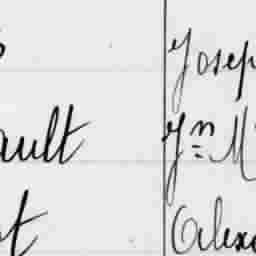 Josep
ault Jn M
t Alex